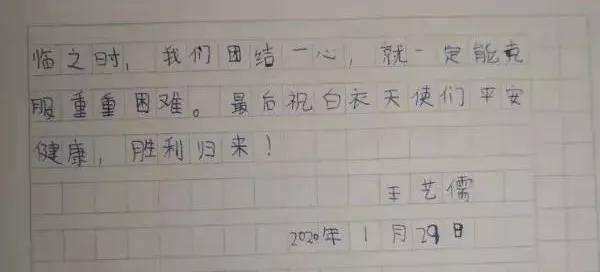 临之时，我们团结一心，就一定能克
服重重困难。最后祝白衣天使们平安
健康，胜利归来！
王艺儒
2020年1月29日